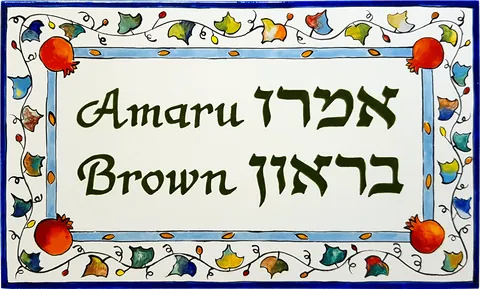 Amaru אמרו
Brown בראון